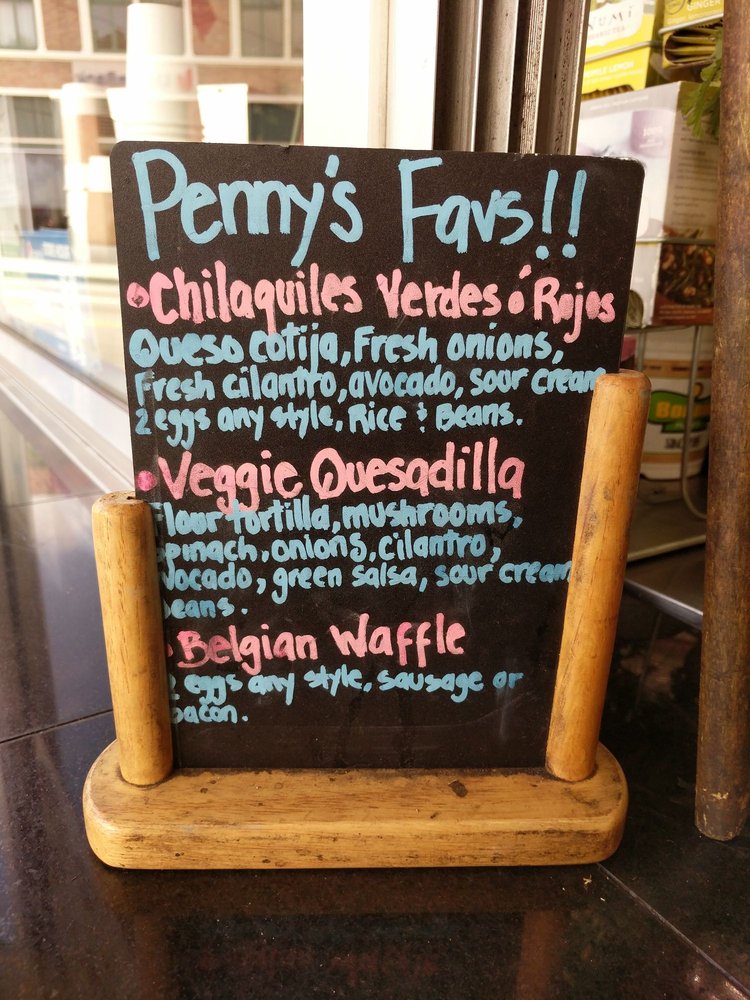 Penny's Favs!!
•Chilaquiles Verdes ó Rojos
Queso cotija, Fresh onions,
Fresh cilantro, avocado, sour cream
2 eggs any style, Rice & Beans.
•Veggie Quesadilla
Floor tortilla, mushrooms,
spinach, onions, cilantro,
avocado, green salsa, sour cream
beans.
•Belgian Waffle
2 eggs any style, sausage or
bacon.
GINGER